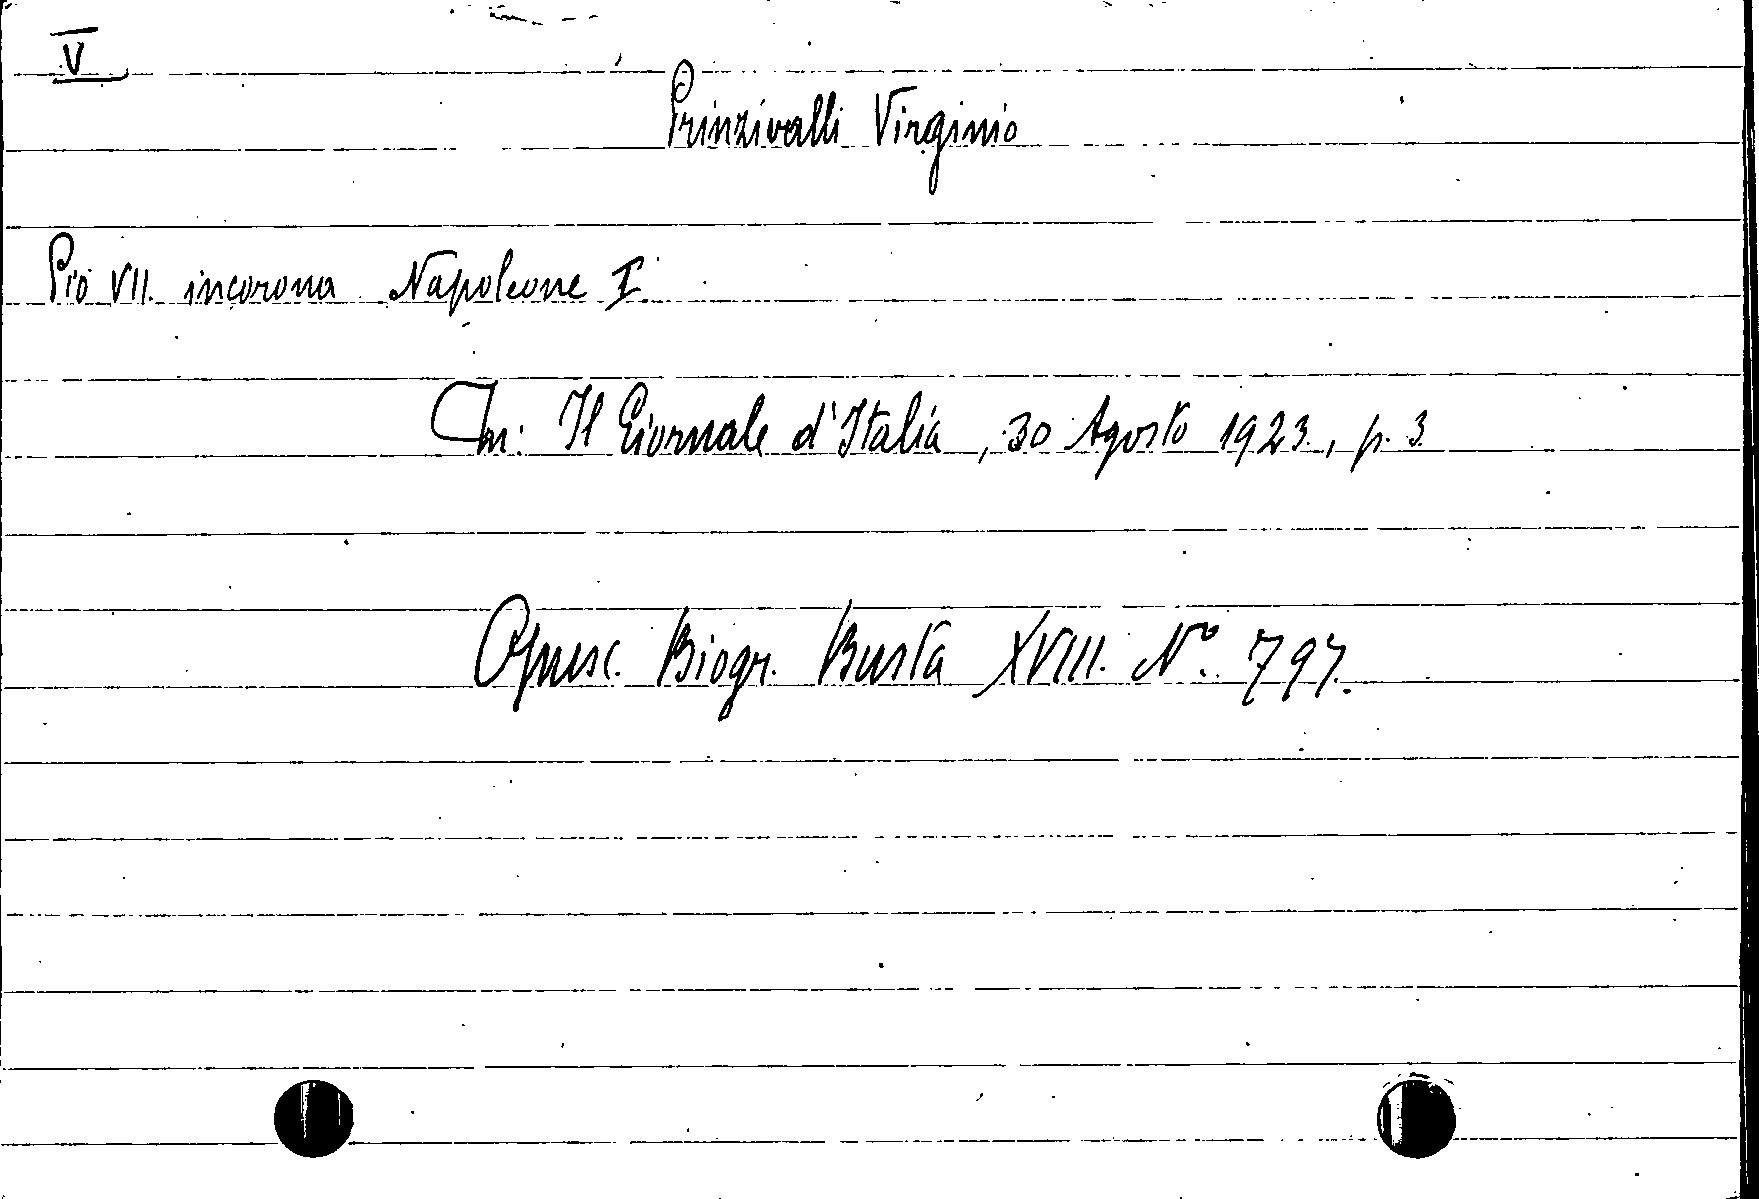 V
Prinzivalli Virginio
Pio VII. incorona Napoleone I.
In: Il Giornale d'Italia, 30 Agosto 1923., p. 3.
Opusc. Biogr. Busta XVIII. Nº. 797.